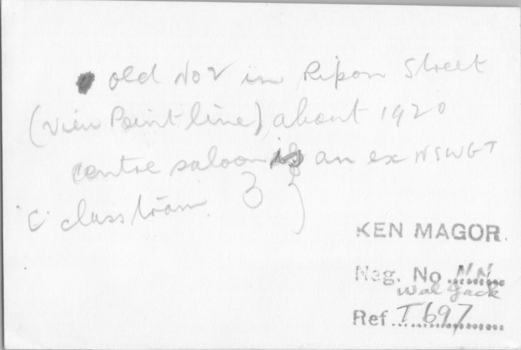 old No 2 in Ripon Street
(View Point line) about 1920
centre saloon is an ex NSWGT
'C' class tram.
KEN MAGOR.
Neg. No NN
Wal Jack
Ref T697